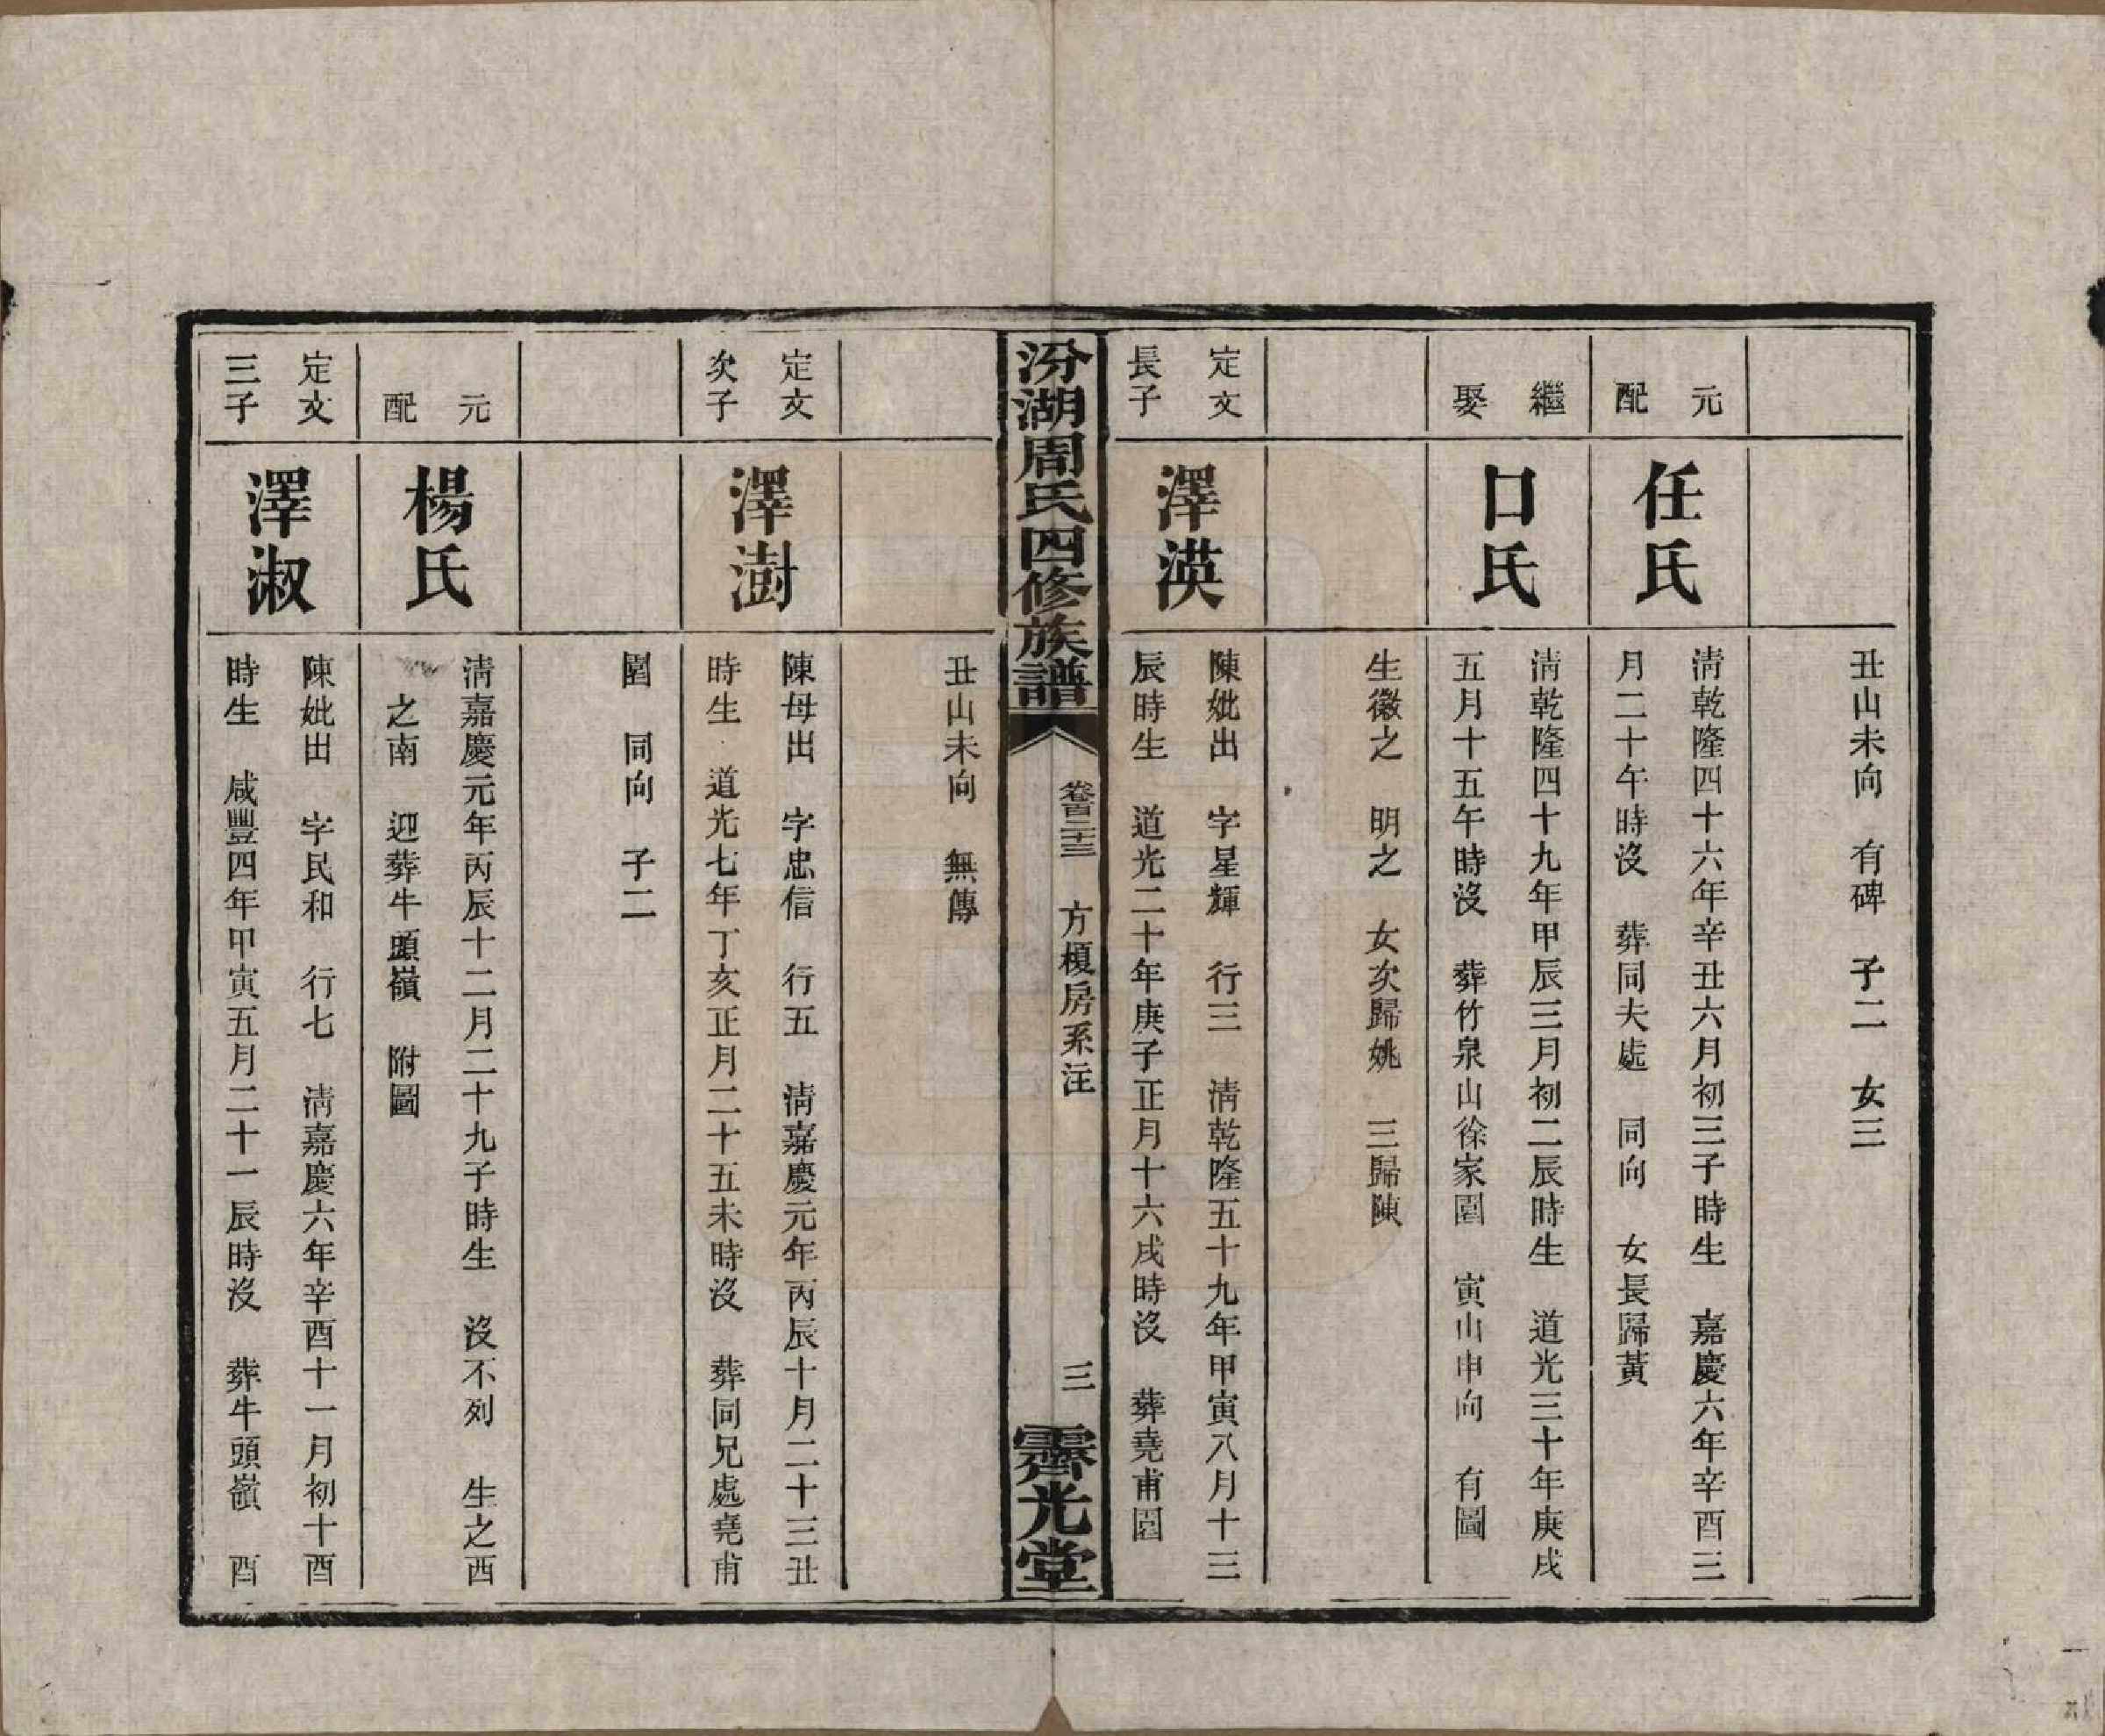 丑山未向　有碑　子二　女三
元配
任氏
淸乾隆四十六年辛丑六月初三子時生　嘉慶六年辛酉三
月二十午時沒　葬同夫處　同向　女長歸黃
繼娶
口氏
淸乾隆四十九年甲辰三月初二辰時生　道光三十年庚戌
五月十五午時沒　葬竹泉山徐家園　寅山申向　有圖
生徽之　明之　女次歸姚　三歸陳
定文
長子
澤渶
陳妣出　字星輝　行三　淸乾隆五十九年甲寅八月十三
辰時生　道光二十年庚子正月十六戌時沒　葬堯甫園
汾湖周氏四修族譜
卷百二十三　方榎房系注
三
霽光堂
丑山未向　無傳
定文
次子
澤澍
陳母出　字忠信　行五　淸嘉慶元年丙辰十月二十三丑
時生　道光七年丁亥正月二十五未時沒　葬同兄處堯甫
園　同向　子二
元配
楊氏
淸嘉慶元年丙辰十二月二十九子時生　沒不列　生之酉
之南　迎葬牛頭嶺　附圖
定文
三子
澤淑
陳妣出　字民和　行七　淸嘉慶六年辛酉十一月初十酉
時生　咸豐四年甲寅五月二十一辰時沒　葬牛頭嶺　酉